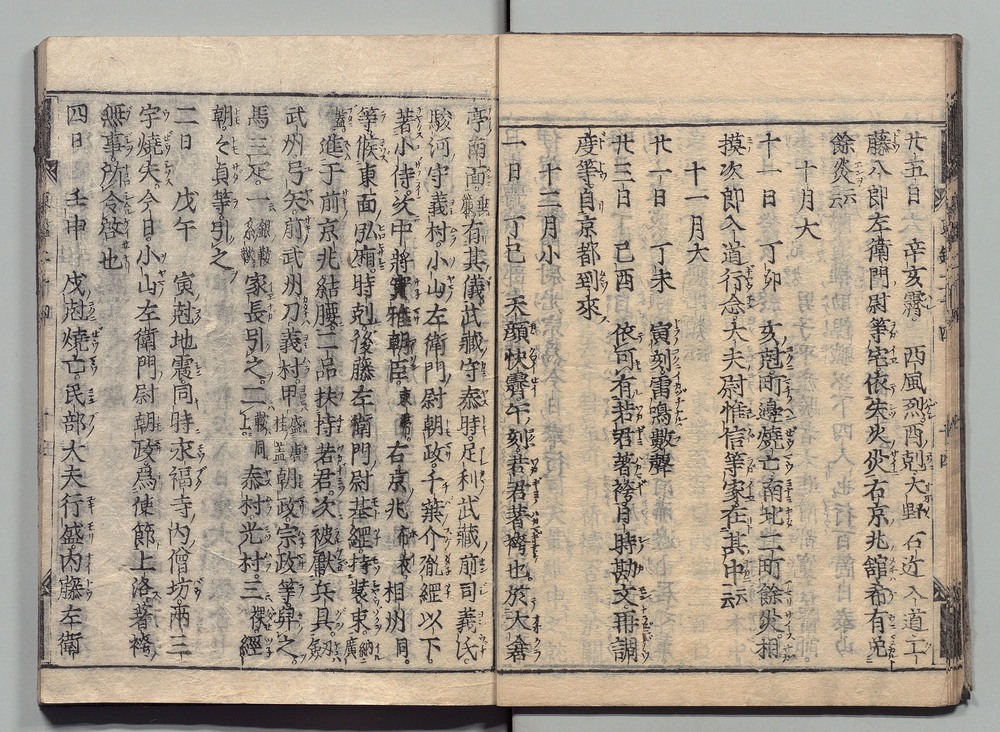 廿五日　辛亥霽。　西風烈。酉剋大野右近入道工
藤八郎左衛門尉等宅依失火災。右京兆舘希有免
餘炎云云
十月大
十一日　丁卯　亥剋町邊燒亡南北二町餘災。相
摸次郎入道行念大夫尉惟信等家在其中云云
十一月大
廿一日　丁未　寅刻雷鳴數聲
廿三日　己酉　依可有若君著袴日時勘文并調
度等自京都到來
十二月小
一日　丁巳　天顔快霽。午刻。若君著袴也於大倉
亭南面垂簾有其儀武藏守泰時。足利武藏前司義氏。
駿河守義村。小山左衛門尉朝政。千葉介胤綱以下。
著小侍。次中將實雅朝臣。束帶右京兆布衣相州同。
等候東面弘廂。時剋。後藤左衛門尉基綱。持裝束。納廣
蓋進于前京兆結腰。二品扶持若君。次被獻兵具。劔
武州弓矢前武州刀。義村甲盛唐櫃蓋朝政宗政等舁之。
馬三疋。一銀鞍家長引之。二鞍同上。泰村光村。三裸經
朝之貞等引之
二日　戊午　寅剋地震同時永福寺內僧坊兩三
宇燒失。今日。小山左衛門尉朝政爲使節上洛著袴
無事所令啓也
四日　壬申　戌剋燒亡民部大夫行盛。內藤左衛